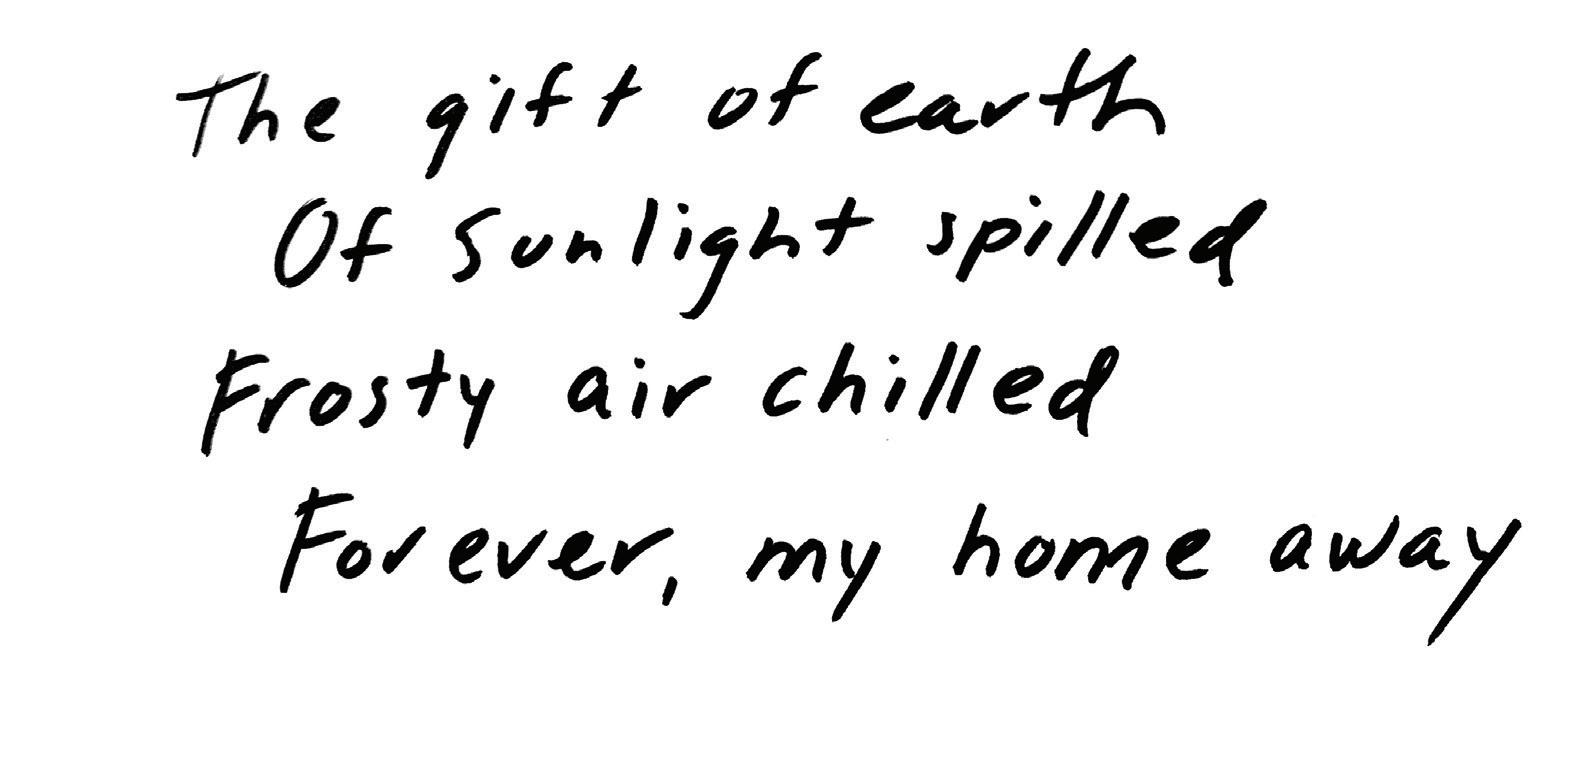 The gift of earth
Of sunlight spilled
Frosty air chilled
Forever, my home away